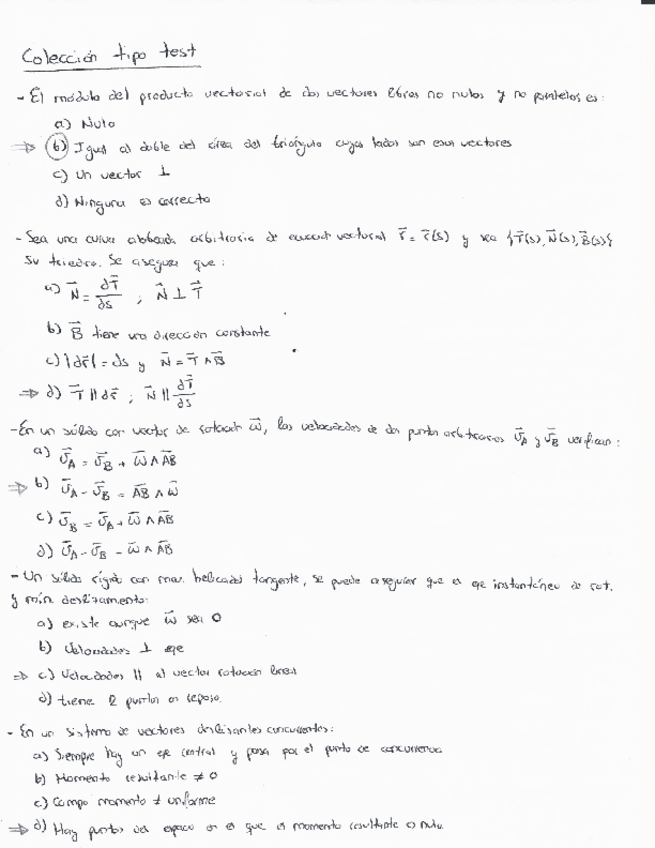 Colección tipo test
- El módulo del producto vectorial de dos vectores libres no nulos y no paralelos es:
a) Nulo
⇒ b) Igual al doble del área del triángulo cuyos lados son esos vectores
c) Un vector ⊥
d) Ninguna es correcta
- Sea una curva alabeada arbitraria de ecuación vectorial r⃗ = r⃗(s) y sea {T⃗(s), N⃗(s), B⃗(s)}
su triedro. Se asegura que:
a) N⃗ = dT⃗/ds ; N⃗ ⊥ T⃗
b) B⃗ tiene una dirección constante
c) |dr⃗| = ds y N⃗ = T⃗ ∧ B⃗
⇒ d) T⃗ || dr⃗ ; N⃗ || dT⃗/ds
- En un sólido con vector de rotación ω⃗, las velocidades de dos puntos arbitrarios v⃗A y v⃗B verifican:
a) v⃗A = v⃗B + ω⃗ ∧ AB
⇒ b) v⃗A - v⃗B = AB ∧ ω⃗
c) v⃗B = v⃗A + ω⃗ ∧ AB
d) v⃗A - v⃗B - ω⃗ ∧ AB
- Un sólido rígido con mov. helicoidal tangente, se puede asegurar que el eje instantáneo de rot.
y mín deslizamiento:
a) existe aunque ω⃗ sea 0
b) Velocidades ⊥ eje
⇒ c) Velocidades || al vector rotación
d) tiene 2 puntos en reposo.
- En un sistema de vectores deslizantes concurrentes:
a) Siempre hay un eje central y pasa por el punto de concurrencia
b) Momento resultante ≠ 0
c) Campo momento ≠ uniforme
⇒ d) Hay puntos del espacio en el que el momento resultante es nulo.